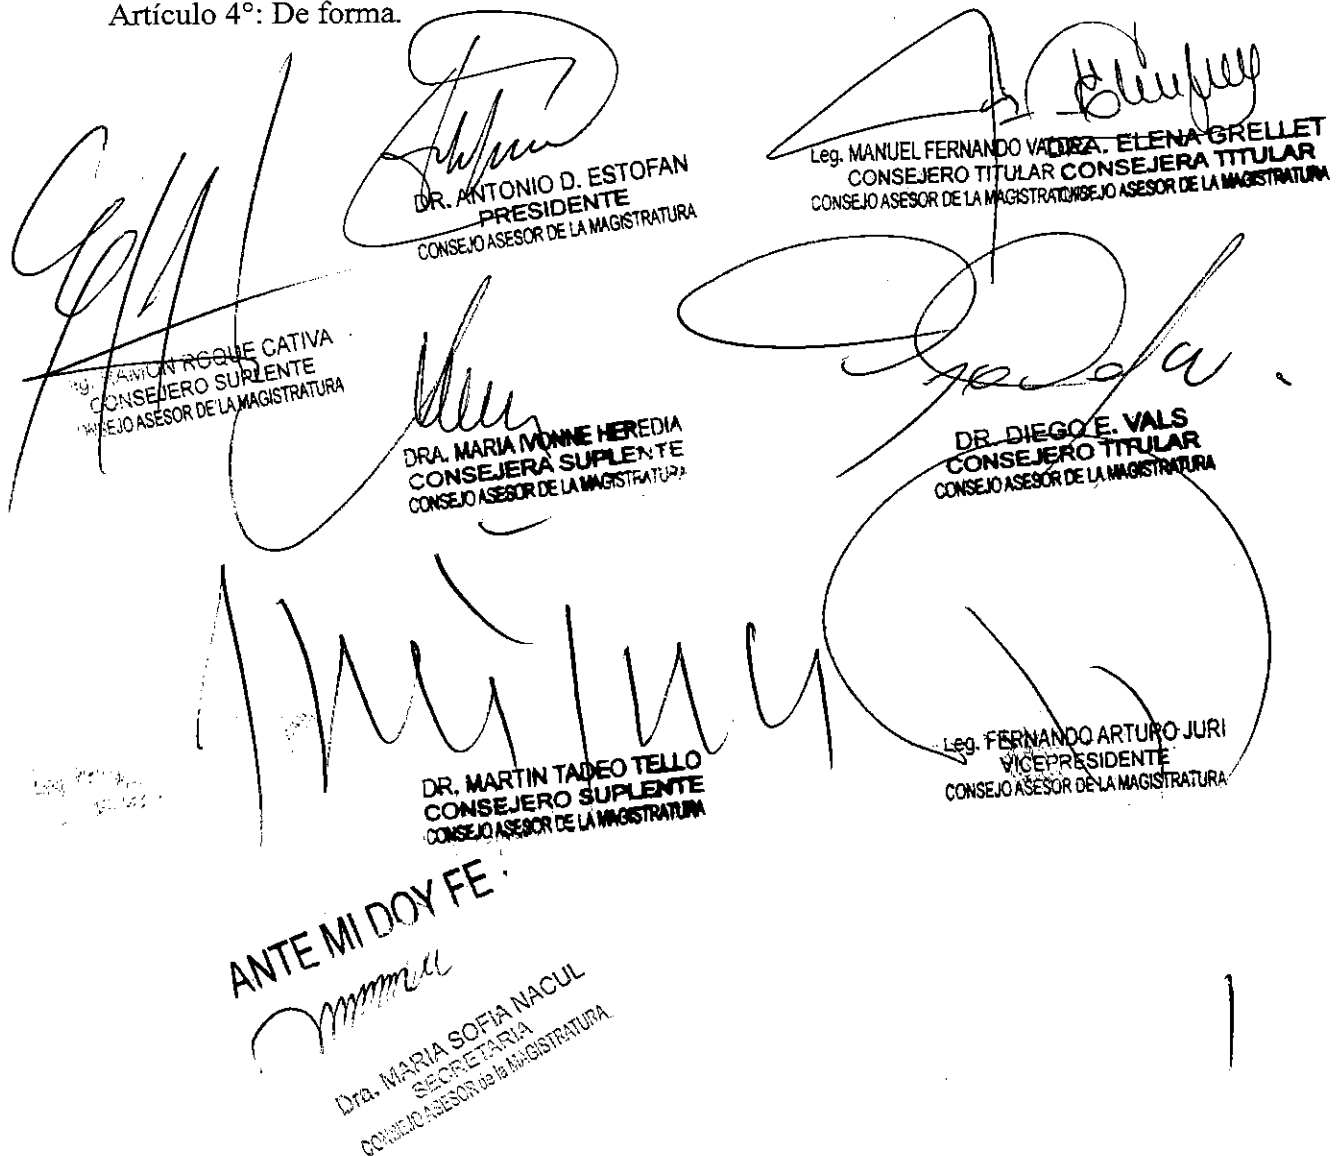 Artículo 4°: De forma.
DR. ANTONIO D. ESTOFAN
PRESIDENTE
CONSEJO ASESOR DE LA MAGISTRATURA
Leg. MANUEL FERNANDO
CONSEJERO TITULAR
CONSEJO ASESOR DE LA
DRA. ELENA GRELLET
CONSEJERA TITULAR
CONSEJO ASESOR DE LA MAGISTRATURA
RAMON ROQUE CATIVA
CONSEJERO SUPLENTE
CONSEJO ASESOR DE LA MAGISTRATURA
DRA. MARIA IVONNE HEREDIA
CONSEJERA SUPLENTE
CONSEJO ASESOR DE LA MAGISTRATURA
DR. DIEGO E. VALS
CONSEJERO TITULAR
CONSEJO ASESOR DE LA MAGISTRATURA
DR. MARTIN TADEO TELLO
CONSEJERO SUPLENTE
CONSEJO ASESOR DE LA MAGISTRATURA
Leg. FERNANDO ARTURO JURI
VICEPRESIDENTE
CONSEJO ASESOR DE LA MAGISTRATURA
ANTE MI DOY FE
Dra. MARIA SOFIA NACUL
SECRETARIA
CONSEJO ASESOR de la MAGISTRATURA